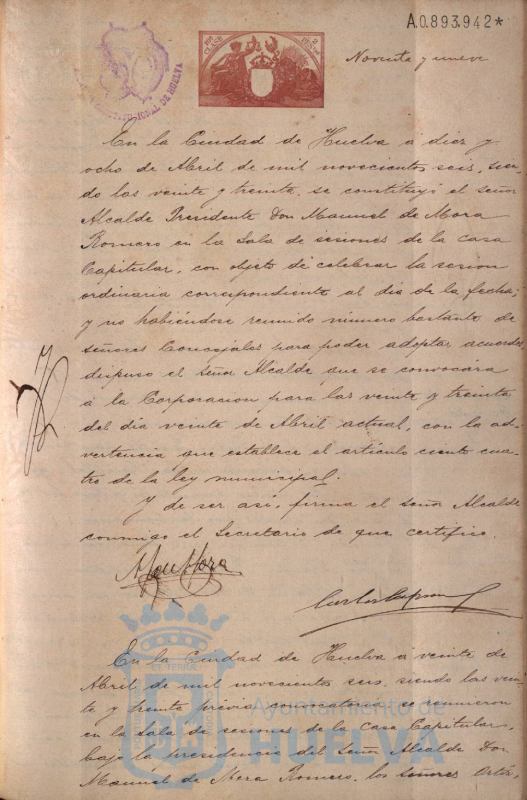 A.0.893.942*
Noventa y nueve
En la Ciudad de Huelva á diez y
ocho de Abril de mil novecientos seis, sien-
do las veinte y treinta, se constituyó el señor
Alcalde Presidente Don Manuel de Mora
Romero en la Sala de sesiones de la Casa
Capitular, con objeto de celebrar la sesion
ordinaria correspondiente al dia de la fecha;
y no habiéndose reunido número bastante de
señores Concejales para poder adoptar acuerdos
dispuso el señor Alcalde, que se convocára
á la Corporacion para las veinte y treinta
del dia veinte de Abril actual, con la ad-
vertencia que establece el artículo ciento cua-
tro de la ley municipal.
Y de ser así, firma el señor Alcalde
conmigo el Secretario de que certifico.
En la Ciudad de Huelva á veinte de
Abril de mil novecientos seis, siendo las vein-
te y treinta prévia convocatoria se reunieron
en la sala de sesiones de la Casa Capitular,
bajo la presidencia del Señor Alcalde Don
Manuel de Mora Romero, los señores
Ayuntamiento de
HUELVA